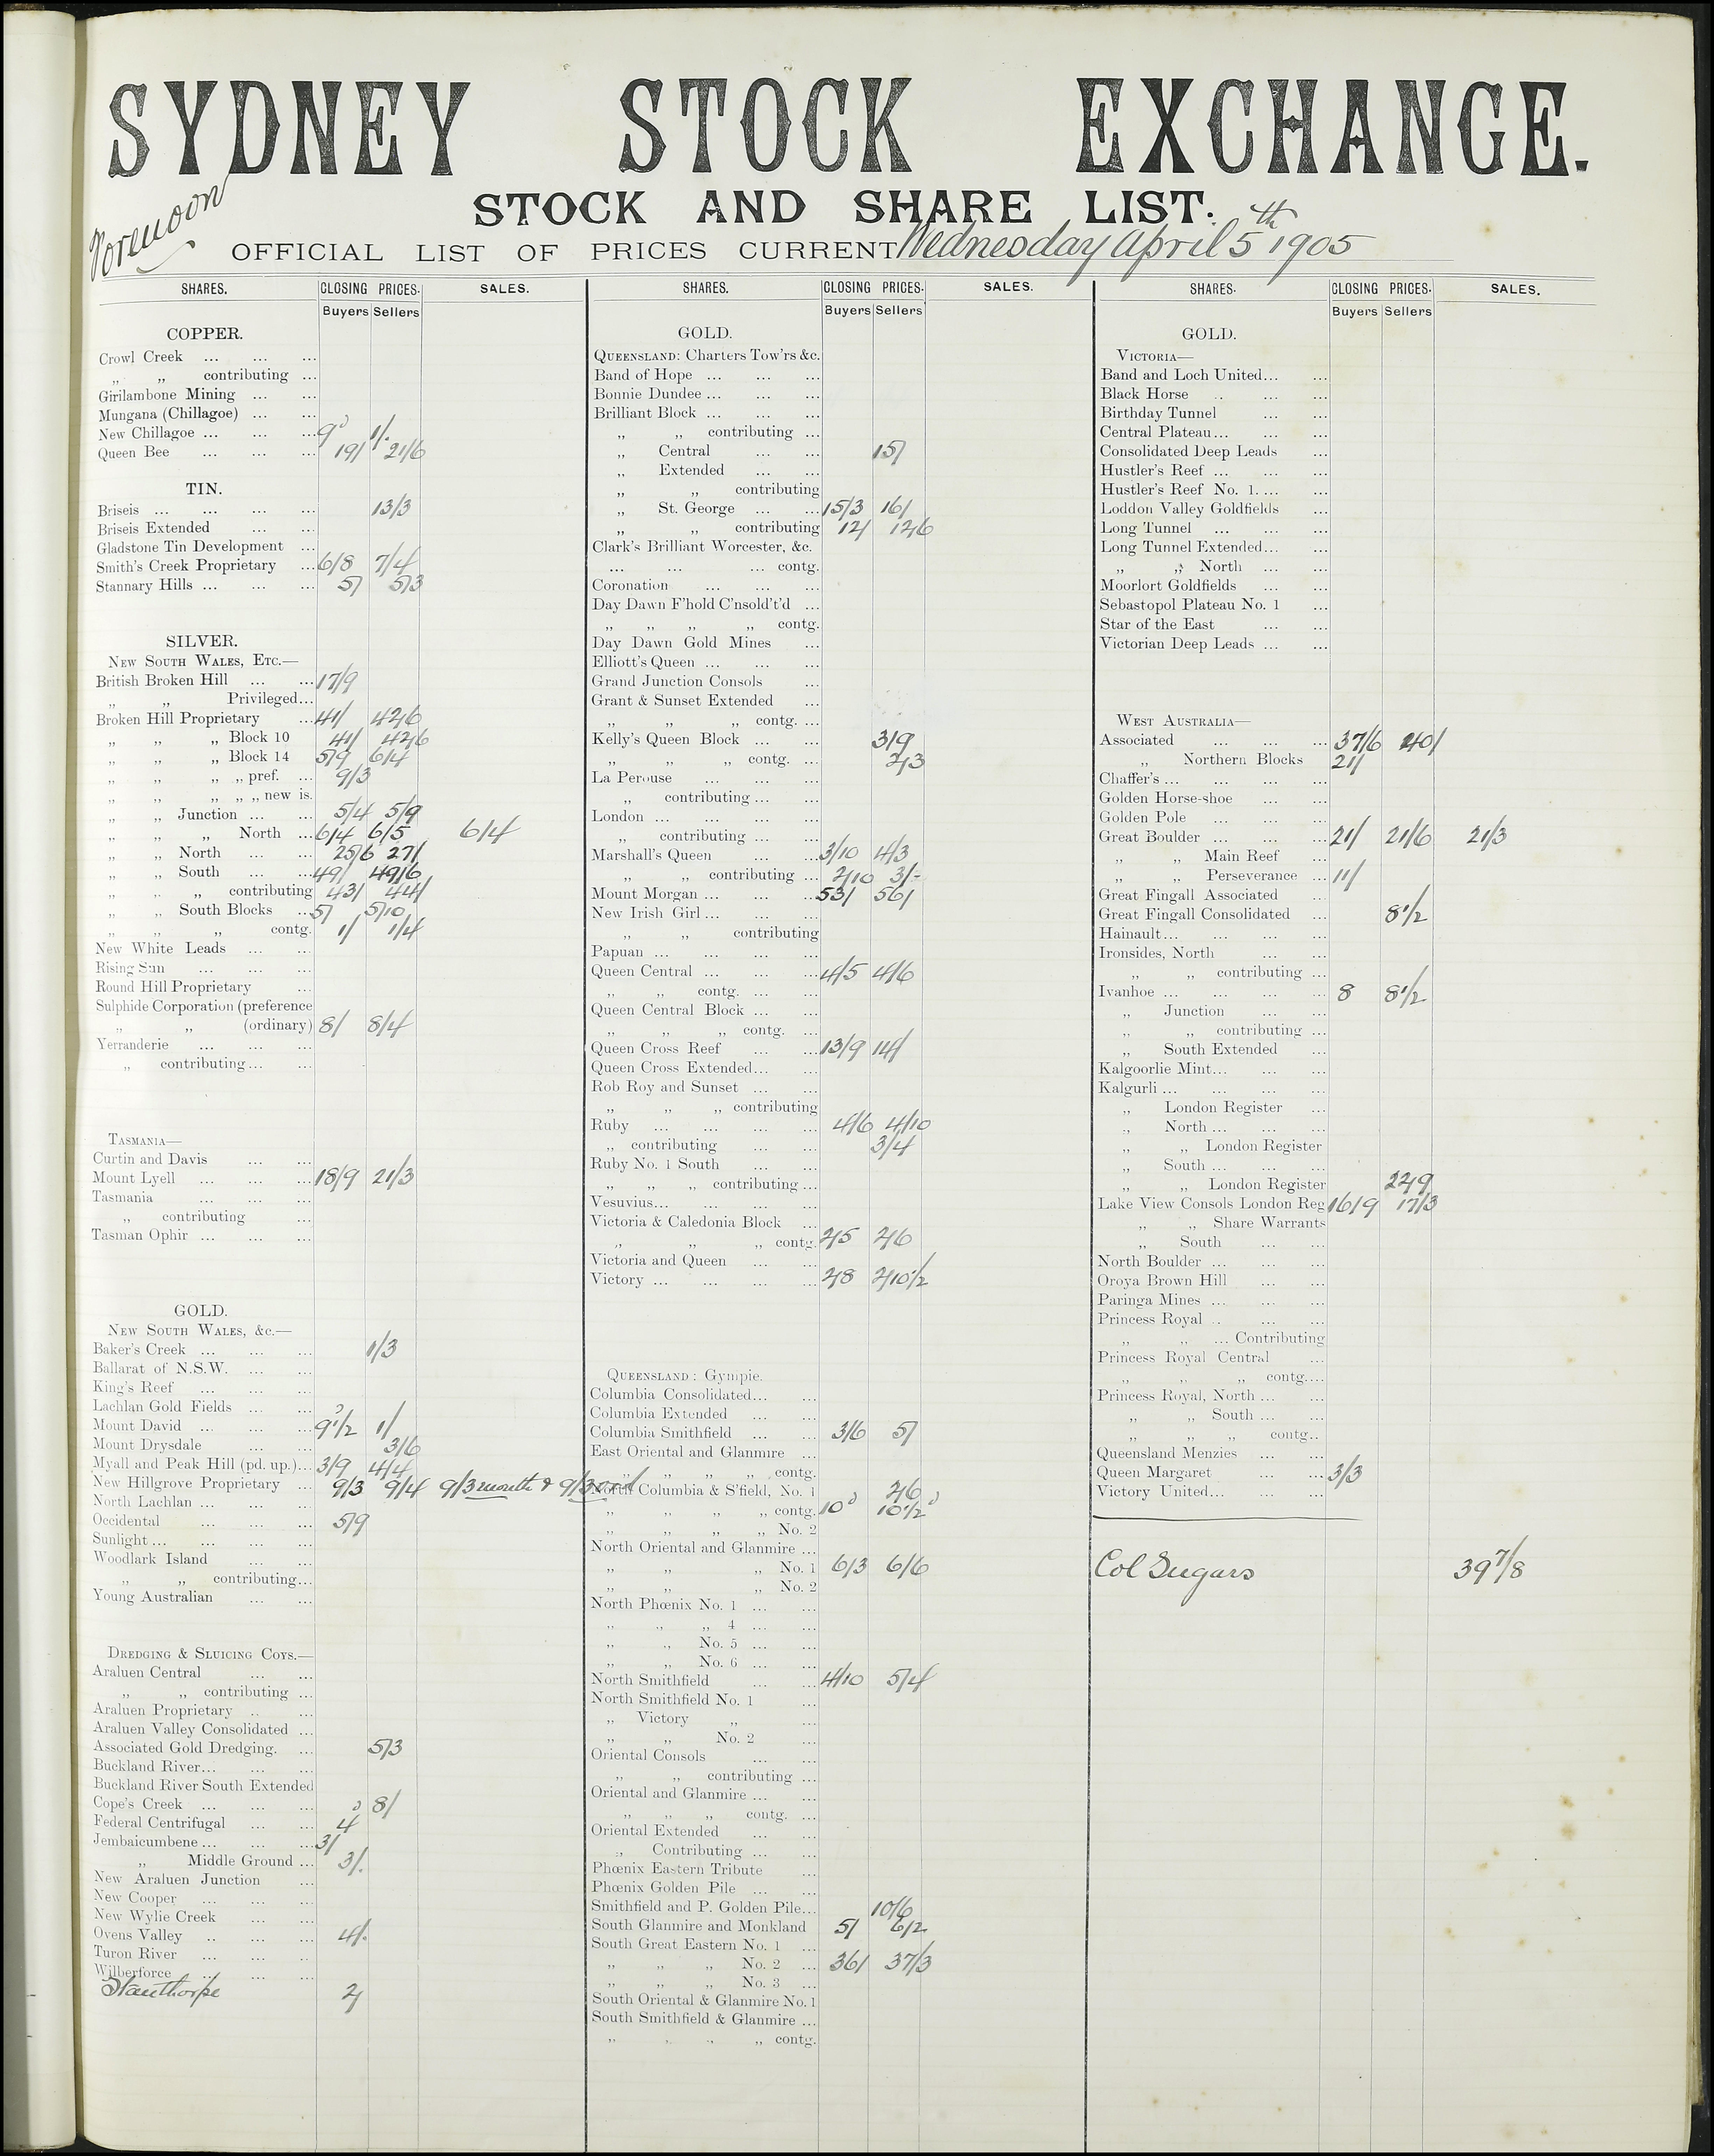 SYDNEY STOCK EXCHANGE.
STOCK AND SHARE LIST.
Forenoon
OFFICIAL LIST OF PRICES CURRENT Wednesday April 5th 1905
SHARES. CLOSING PRICES. SALES.
Buyers Sellers
COPPER.
Crowl Creek ... ... ...
„ „ contributing ...
Girilambone Mining ... ...
Mungana (Chillagoe) ... ...
New Chillagoe ... ... ... 9d 1/.
Queen Bee ... ... ... 19/ 21/6
TIN.
Briseis ... ... ... ... 13/3
Briseis Extended ... ...
Gladstone Tin Development ...
Smith's Creek Proprietary ... 6/8 7/4
Stannary Hills ... ... ... 5/ 5/3
SILVER.
NEW SOUTH WALES, ETC.—
British Broken Hill ... ... 17/9
„ „ Privileged...
Broken Hill Proprietary ... 41/ 42/6
„ „ „ Block 10 41/ 42/6
„ „ „ Block 14 5/9 6/4
„ „ „ „ pref. ... 9/3
„ „ „ „ „ new is.
„ „ Junction ... ... 5/4 5/9
„ „ „ North ... 6/4 6/5 6/4
„ „ North ... ... 25/6 27/
„ „ South ... ... 49/ 49/6
„ „ „ contributing 43/ 44/
„ „ South Blocks ... 5/ 5/10
„ „ „ contg. 1/ 1/4
New White Leads ... ...
Rising Sun ... ... ...
Round Hill Proprietary ...
Sulphide Corporation (preference
„ „ (ordinary) 8/ 8/4
Yerranderie ... ... ...
„ contributing ... ...
TASMANIA—
Curtin and Davis ... ...
Mount Lyell ... ... ... 18/9 21/3
Tasmania ... ... ...
„ contributing ...
Tasman Ophir ... ... ...
GOLD.
NEW SOUTH WALES, &c.—
Baker's Creek ... ... ... 1/3
Ballarat of N.S.W. ... ...
King's Reef ... ... ...
Lachlan Gold Fields ... ...
Mount David ... ... ... 9 1/2d 1/
Mount Drysdale ... ... 3/6
Myall and Peak Hill (pd. up.)... 3/9 4/4
New Hillgrove Proprietary ... 9/3 9/4 9/3 month & 9/3
North Lachlan ... ... ...
Occidental ... ... ... 5/9
Sunlight ... ... ... ...
Woodlark Island ... ...
„ „ contributing...
Young Australian ... ...
DREDGING & SLUICING COYS.—
Araluen Central ... ...
„ „ contributing ...
Araluen Proprietary .. ...
Araluen Valley Consolidated ...
Associated Gold Dredging. ... 5/3
Buckland River... ... ...
Buckland River South Extended
Cope's Creek ... ... ... 8/
Federal Centrifugal ... ... 4d
Jembaicumbene ... ... ... 3/
„ Middle Ground ... 3/.
New Araluen Junction ...
New Cooper ... ... ...
New Wylie Creek ... ...
Ovens Valley .. ... ... 4/.
Turon River ... ... ..
Wilberforce ... ... ...
Stanthorpe 2/
SHARES. CLOSING PRICES. SALES.
Buyers Sellers
GOLD.
QUEENSLAND: Charters Tow'rs &c.
Band of Hope ... ... ...
Bonnie Dundee ... ... ...
Brilliant Block ... ... ...
„ „ contributing ...
„ Central ... ... 15/
„ Extended ... ...
„ „ contributing
„ St. George ... ... 15/3 16/
„ „ contributing 12/ 12/6
Clark's Brilliant Worcester, &c.
... ... ... contg.
Coronation ... ... ...
Day Dawn F'hold C'nsold't'd ...
„ „ „ „ contg.
Day Dawn Gold Mines ...
Elliott's Queen ... ... ...
Grand Junction Consols ...
Grant & Sunset Extended ...
„ „ „ contg. ...
Kelly's Queen Block ... ... 3/9
„ „ „ contg. ... 2/3
La Perouse ... ... ...
„ contributing ... ...
London ... ... ... ...
„ contributing ... ...
Marshall's Queen ... ... 3/10 4/3
„ „ contributing ... 2/10 3/-
Mount Morgan ... ... ... 53/ 56/
New Irish Girl ... ... ...
„ „ contributing
Papuan ... ... ... ...
Queen Central ... ... ... 4/5 4/6
„ „ contg. ... ...
Queen Central Block ... ...
„ „ „ contg. ...
Queen Cross Reef ... ... 13/9 14/
Queen Cross Extended... ...
Rob Roy and Sunset ... ...
„ „ „ contributing
Ruby ... ... ... ... 4/6 4/10
„ contributing ... ... 3/4
Ruby No. 1 South ... ...
„ „ „ contributing ...
Vesuvius... ... ... ...
Victoria & Caledonia Block ...
„ „ „ contg. 2/5 2/6
Victoria and Queen ... ...
Victory ... ... ... ... 2/8 2/10 1/2
QUEENSLAND: Gympie.
Columbia Consolidated... ...
Columbia Extended ... ...
Columbia Smithfield ... ... 3/6 5/
East Oriental and Glanmire ...
„ „ „ „ contg.
North Columbia & S'field, No. 1 2/6
„ „ „ „ contg. 10d 10 1/2d
„ „ „ „ No. 2
North Oriental and Glanmire ...
„ „ „ No. 1 6/3 6/6
„ „ „ No. 2
North Phœnix No. 1 ... ...
„ „ „ 4 ... ...
„ „ No. 5 ... ...
„ „ No. 6 ... ...
North Smithfield ... ... 4/10 5/4
North Smithfield No. 1 ...
„ Victory „ ...
„ „ No. 2 ...
Oriental Consols ... ...
„ „ contributing ...
Oriental and Glanmire ... ...
„ „ „ contg. ...
Oriental Extended ... ...
„ Contributing ... ...
Phœnix Eastern Tribute ...
Phœnix Golden Pile ... ...
Smithfield and P. Golden Pile... 10/6
South Glanmire and Monkland 5/ 6/2
South Great Eastern No. 1 ...
„ „ „ No. 2 ... 36/ 37/3
„ „ „ No. 3 ...
South Oriental & Glanmire No. 1
South Smithfield & Glanmire ...
„ „ „ „ contg.
SHARES. CLOSING PRICES. SALES.
Buyers Sellers
GOLD.
VICTORIA—
Band and Loch United... ...
Black Horse .. ... ...
Birthday Tunnel ... ...
Central Plateau... ... ...
Consolidated Deep Leads ...
Hustler's Reef ... ... ...
Hustler's Reef No. 1. ... ...
Loddon Valley Goldfields ...
Long Tunnel ... ... ...
Long Tunnel Extended... ...
„ „ North ... ...
Moorlort Goldfields ... ...
Sebastopol Plateau No. 1 ...
Star of the East ... ...
Victorian Deep Leads ... ...
WEST AUSTRALIA—
Associated ... ... ... 37/6 40/
„ Northern Blocks 21/
Chaffer's ... ... ... ...
Golden Horse-shoe ... ...
Golden Pole ... ... ...
Great Boulder ... ... ... 21/ 21/6 21/3
„ „ Main Reef ...
„ „ Perseverance ... 11/
Great Fingall Associated ...
Great Fingall Consolidated ... 8 1/2
Hainault... ... ... ...
Ironsides, North ... ...
„ „ contributing ...
Ivanhoe ... ... ... ... 8 8 1/2
„ Junction ... ...
„ „ contributing ...
„ South Extended ...
Kalgoorlie Mint... ... ...
Kalgurli ... ... ... ...
„ London Register ...
„ North ... ... ...
„ „ London Register
„ South ... ... ...
„ „ London Register 22/9
Lake View Consols London Reg 16/9 17/3
„ „ Share Warrants
„ South ... ...
North Boulder ... ... ...
Oroya Brown Hill ... ...
Paringa Mines ... ... ...
Princess Royal .. ... ...
„ „ ... Contributing
Princess Royal Central ...
„ „ „ contg....
Princess Royal, North ... ...
„ „ South ... ...
„ „ „ contg..
Queensland Menzies ... ...
Queen Margaret ... ... 3/3
Victory United... ... ...
Col Sugars 39 7/8